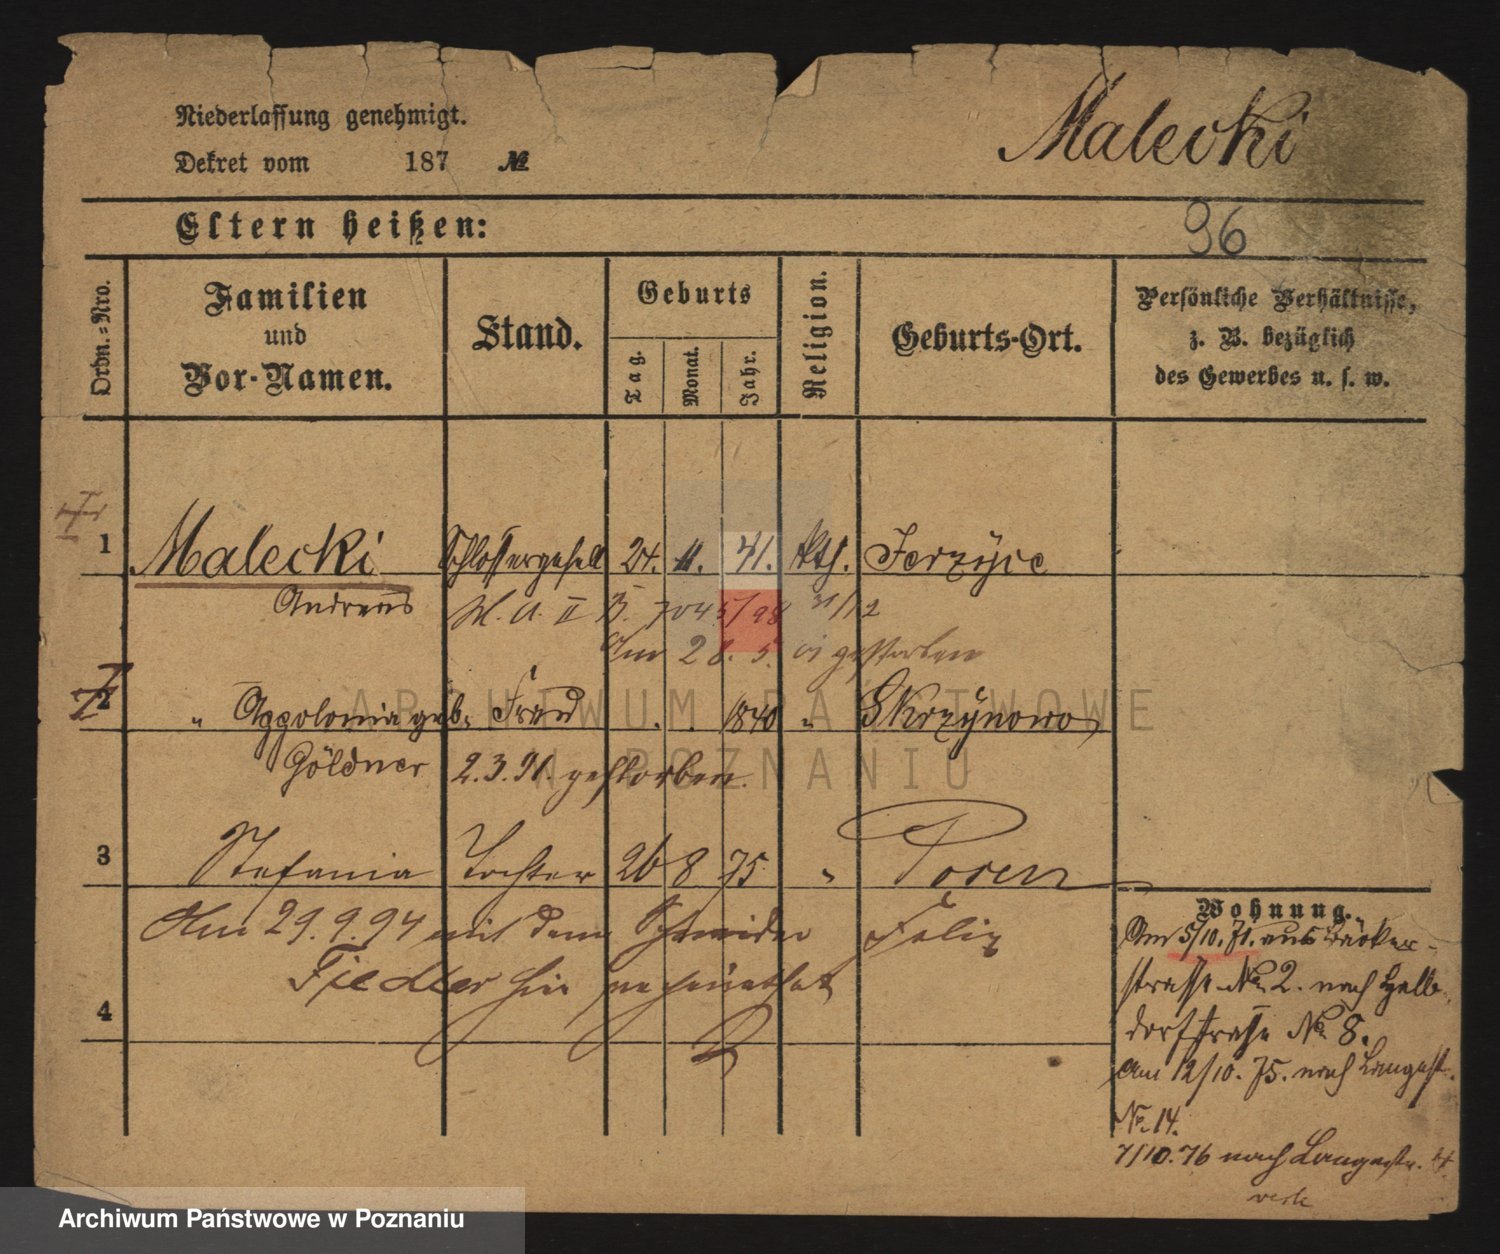 Niederlassung genehmigt.
Malecki
Dekret vom 187 №
Eltern heißen:
96
Ordn.=Nro.
Familien
und
Vor-Namen.
Stand.
Geburts
Tag.
Monat.
Jahr.
Religion.
Geburts-Ort.
Persönliche Verhältnisse,
z. B. bezüglich
des Gewerbes u. s. w.
1 Malecki Schlossergesell 24. 11. 41. kth. Jerzyce
Andreas
Am 28. 5. gestorben
2 " Appolonia geb. Frau 1840 " Skrzynowo
Göldner 2.3.91. gestorben.
3 Stefania Tochter 26 8 75 " Posen
Am 29.9.94 mit dem Schneider Felix
Fiedler hier
4
Wohnung.
Am 5/10. 71. aus Bäcker-
strasse No. 2. nach Halb-
dorfstrasse No. 8.
Am 12/10. 75. nach Langestr.
No. 14.
7/10.76 nach Langestr.
ARCHIWUM PAŃSTWOWE
W POZNANIU
Archiwum Państwowe w Poznaniu